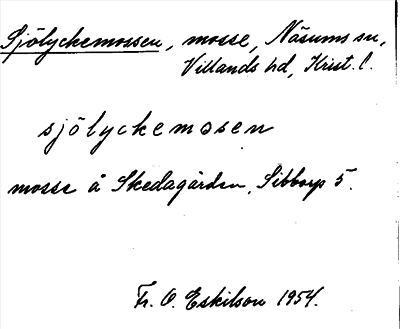 Sjölyckemossen, mosse, Näsums sn,
Villands hd, Krist. l.
sjölyckemosen
mosse å Skedagården, Sibborp 5.
Fr. O. Eskilson 1954.